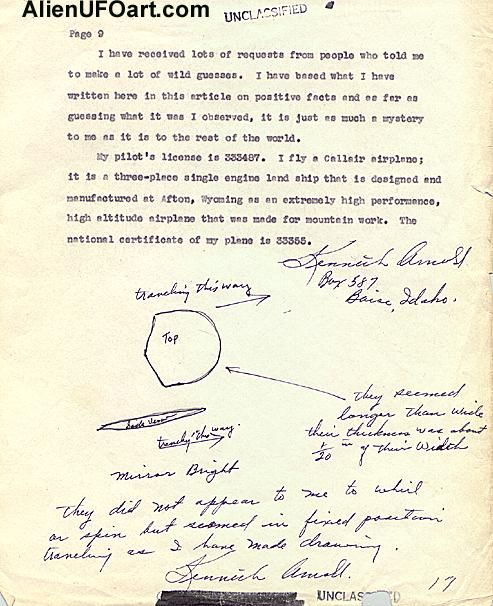 AlienUFOart.com
UNCLASSIFIED
Page 9
I have received lots of requests from people who told me
to make a lot of wild guesses. I have based what I have
written here in this article on positive facts and as far as
guessing what it was I observed, it is just as much a mystery
to me as it is to the rest of the world.
My pilot's license is 333487. I fly a Callair airplane;
it is a three-place single engine land ship that is designed and
manufactured at Afton, Wyoming as an extremely high performance,
high altitude airplane that was made for mountain work. The
national certificate of my plane is 33355.
Kenneth Arnold
Box 587
Boise, Idaho.
traveling this way
Top
they seemed
longer than wide
their thickness was about
1/20 th of their width
side view
traveling this way.
Mirror Bright
They did not appear to me to whirl
or spin but seemed in fixed position
traveling as I have made drawing.
Kenneth Arnold.
17
UNCLASSIFIED